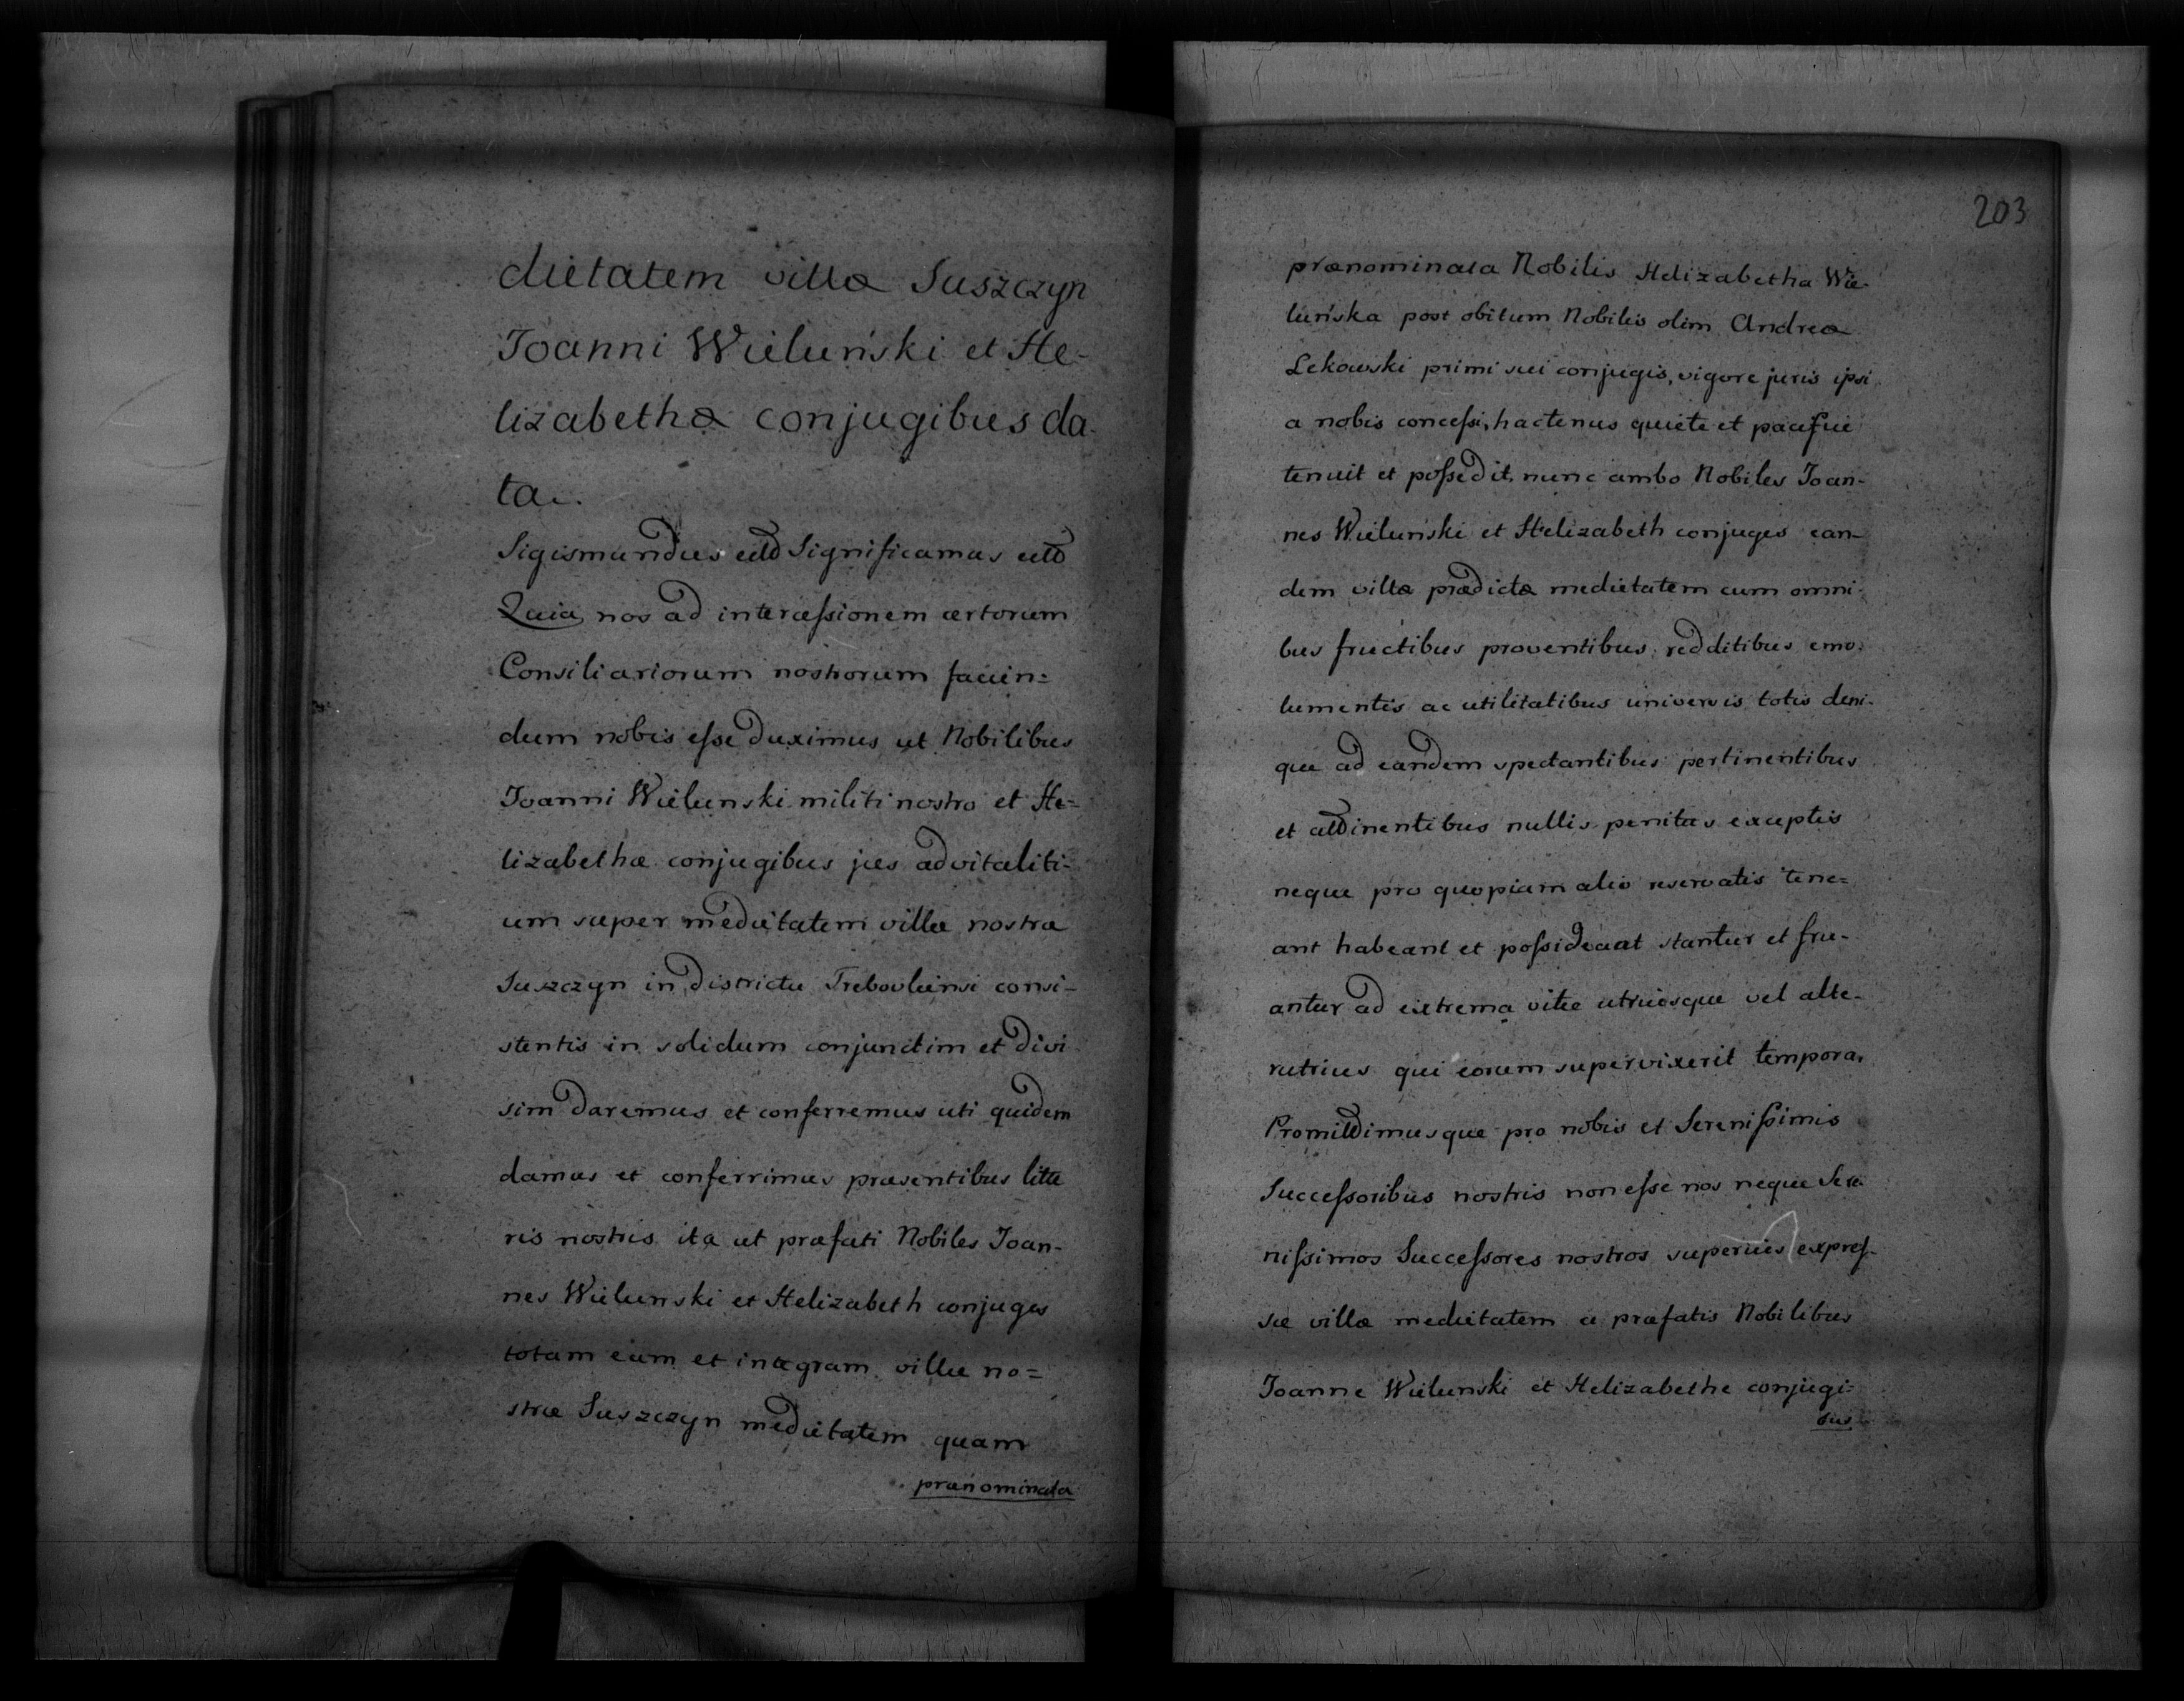 dietatem villæ Suszczyn
Joanni Wieluński et He-
lizabethæ conjugibus da-
ta.
Sigismundus ettc Significamus ettc
Quia nos ad intercessionem certorum
Consiliariorum nostrorum facien=
dum nobis esse duximus ut Nobilibus
Joanni Wielunski militi nostro et He=
lizabethæ conjugibus jus advitaliti-
um super medietatem villæ nostræ
Suszczyn in districtu Trebovliensi consi-
stentis in solidum conjunctim et divi
sim daremus et conferremus uti quidem
damus et conferrimus præsentibus litte
ris nostris ita ut præfati Nobiles Joan-
nes Wielunski et Helizabeth conjuges
totam eam et integram villæ no=
stræ Suszczyn medietatem quam
prænominata
203
prænominata Nobilis Helizabetha Wie-
luńska post obitum Nobilis olim Andreæ
Lekowski primi sui conjugis, vigore juris ipsi
a nobis concessi, hactenus quiete et pacifice
tenuit et possedit, nunc ambo Nobiles Joan-
nes Wielunski et Helizabeth conjuges ean-
dem villæ prædictæ medietatem cum omni-
bus fructibus proventibus redditibus emo-
lumentis ac utilitatibus universis totis deni-
que ad eandem spectantibus pertinentibus
et attinentibus nullis penitus exceptis
neque pro quopiam alio reservatis tene=
ant habeant et possideant utantur et fru-
antur ad extrema vitæ utriusque vel alte-
rutrius qui eorum supervixerit tempora,
Promittimusque pro nobis et Serenissimis
Successoribus nostris non esse nos neque Sere
nissimos Successores nostros superius expres-
sæ villæ medietatem a præfatis Nobilibus
Joanne Wielunski et Helizabethe conjugi=
bus